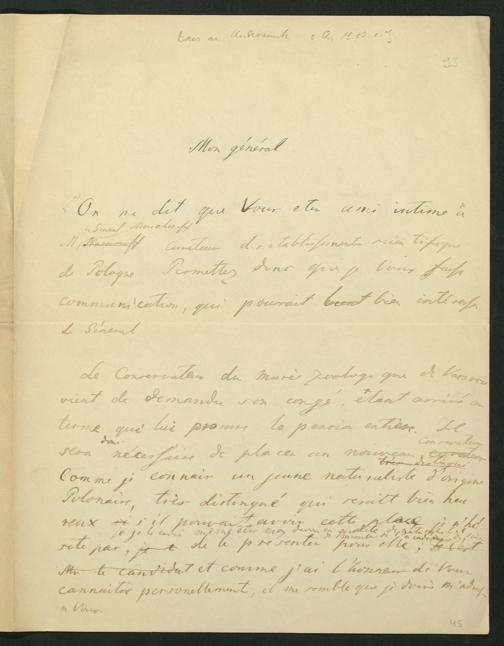 93
Mon général
On ne dit que Vous etes ami intime à
M. curateur des etablissements scientifique
de Pologne Permettez donc que je Vous fasse
communication, qui pourrait bien intéresse
le Général
Le Conservateur du musée zoologique de Varsovi
vient de demander son congé, étant arrivé au
terme qui lui la pension entière. Il
conservateur
sera donc nécessaire de placer un nouveau
très distingué
Comme je connais un jeune naturaliste d'origine
Polonaise, très distingué qui serait bien heu
reux s'il pouvait avoir cette place je n'hé
site pas, de te présenter pour elle;
le candidat et comme j'ai l'honneur de Vous
connaitre personellement, il me semble que je dois m'adres
a Vous.
45